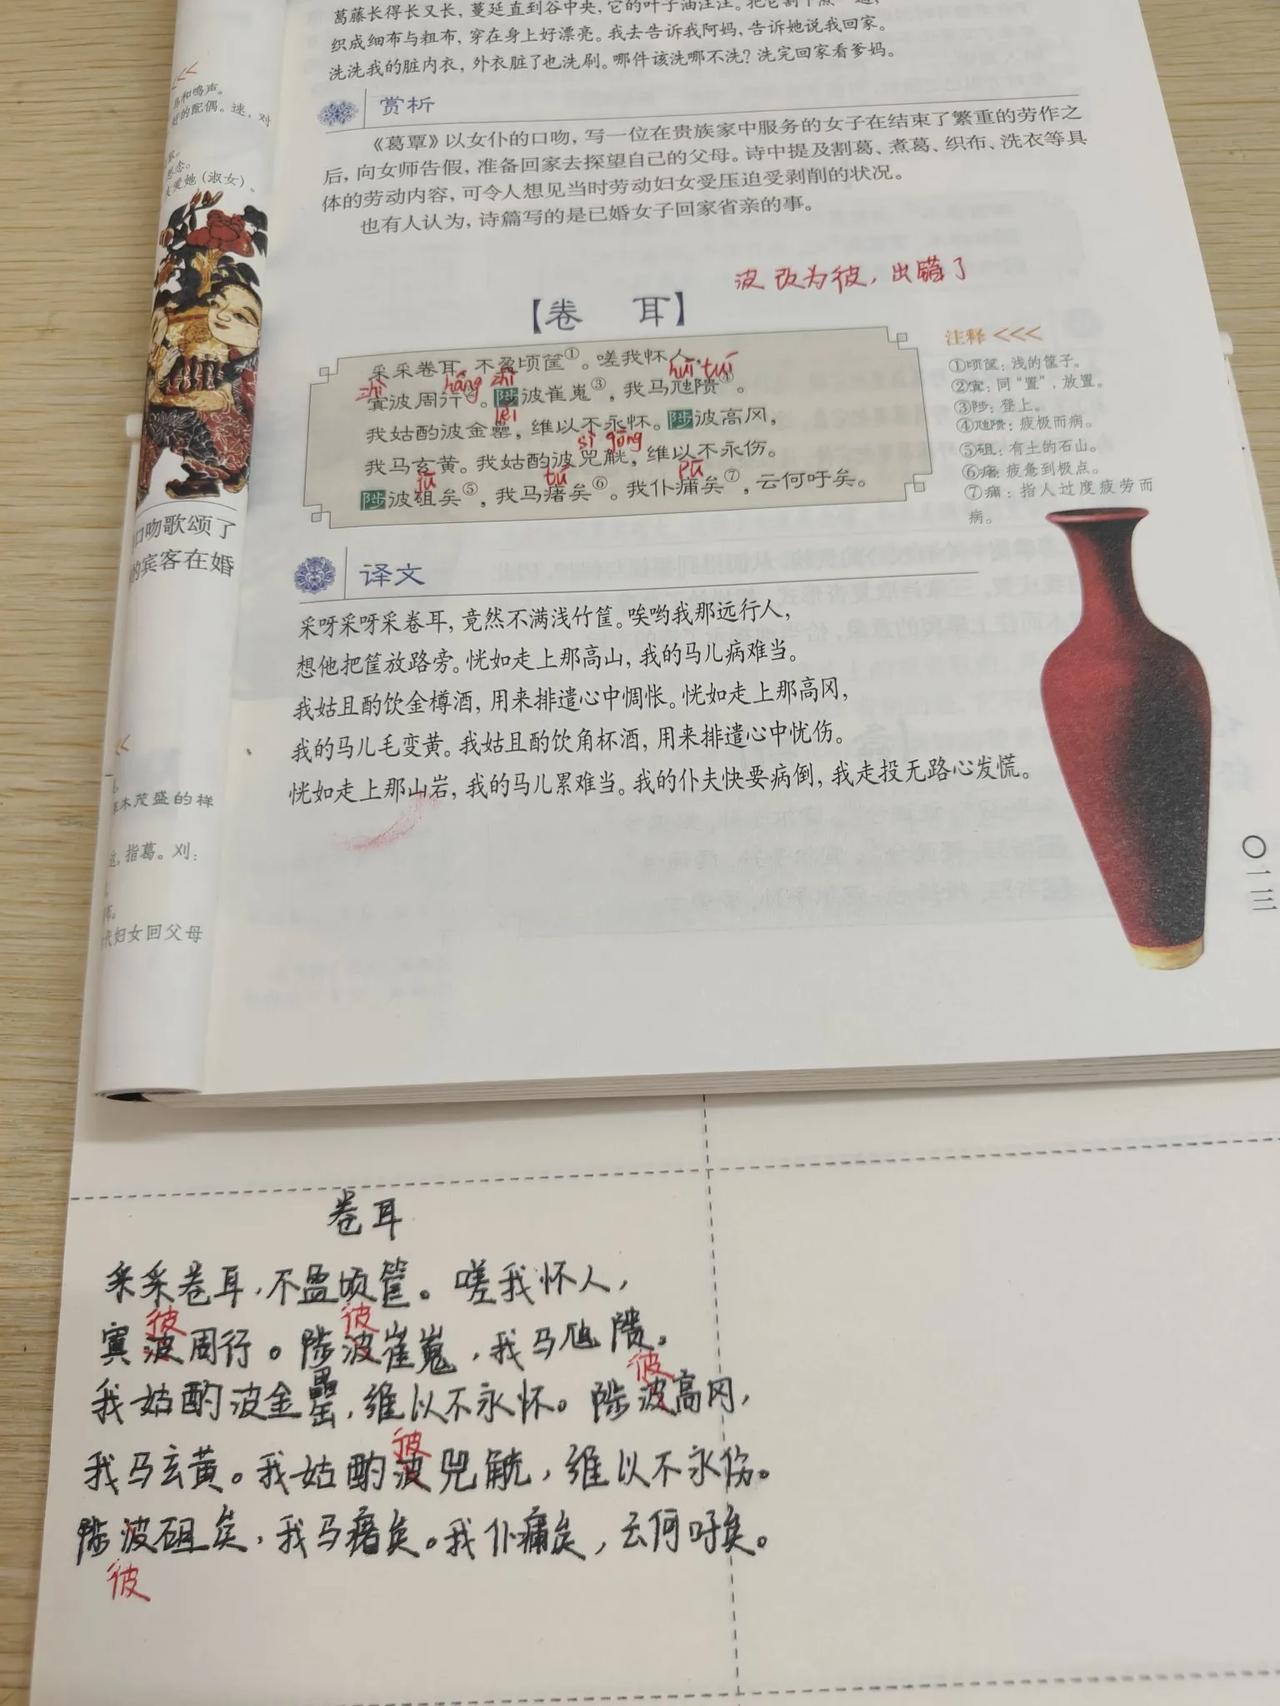 葛藤长得长又长，蔓延直到谷中央，它的叶子油汪汪。把它割下煮一煮，
织成细布与粗布，穿在身上好漂亮。我去告诉我阿妈，告诉她说我回家。
洗洗我的脏内衣，外衣脏了也洗刷。哪件该洗哪不洗？洗完回家看爹妈。
赏析
《葛覃》以女仆的口吻，写一位在贵族家中服务的女子在结束了繁重的劳作之
后，向女师告假，准备回家去探望自己的父母。诗中提及割葛、煮葛、织布、洗衣等具
体的劳动内容，可令人想见当时劳动妇女受压迫受剥削的状况。
也有人认为，诗篇写的是已婚女子回家省亲的事。
波改为彼，出错了
【卷 耳】
采采卷耳，不盈顷筐①。嗟我怀人，
zhì háng zhì huī tuí
寘波周行②。陟波崔嵬③，我马虺隤④。
léi
我姑酌波金罍，维以不永怀。陟波高冈，
sì gōng
我马玄黄。我姑酌波兕觥，维以不永伤。
jū tú pū
陟波砠矣⑤，我马瘏矣⑥。我仆痡矣⑦，云何吁矣。
注释 <<<
①顷筐：浅的筐子。
②寘：同“置”，放置。
③陟：登上。
④虺隤：疲极而病。
⑤砠：有土的石山。
⑥瘏：疲惫到极点。
⑦痡：指人过度疲劳而
病。
译文
采呀采呀采卷耳，竟然不满浅竹筐。唉哟我那远行人，
想他把筐放路旁。恍如走上那高山，我的马儿病难当。
我姑且酌饮金樽酒，用来排遣心中惆怅。恍如走上那高冈，
我的马儿毛变黄。我姑且酌饮角杯酒，用来排遣心中忧伤。
恍如走上那山岩，我的马儿累难当。我的仆夫快要病倒，我走投无路心发慌。
〇一三
<<
鸟和鸣声。
好的配偶。逑，对
爱她（淑女）。
口吻歌颂了
的宾客在婚
<<
草木茂盛的样
这，指葛。刈：
代妇女回父母
卷耳
采采卷耳，不盈顷筐。嗟我怀人，
彼 彼
寘波周行。陟波崔嵬，我马虺隤。
彼
我姑酌波金罍，维以不永怀。陟波高冈，
彼
我马玄黄。我姑酌波兕觥，维以不永伤。
陟波砠矣，我马瘏矣。我仆痡矣，云何吁矣。
彼